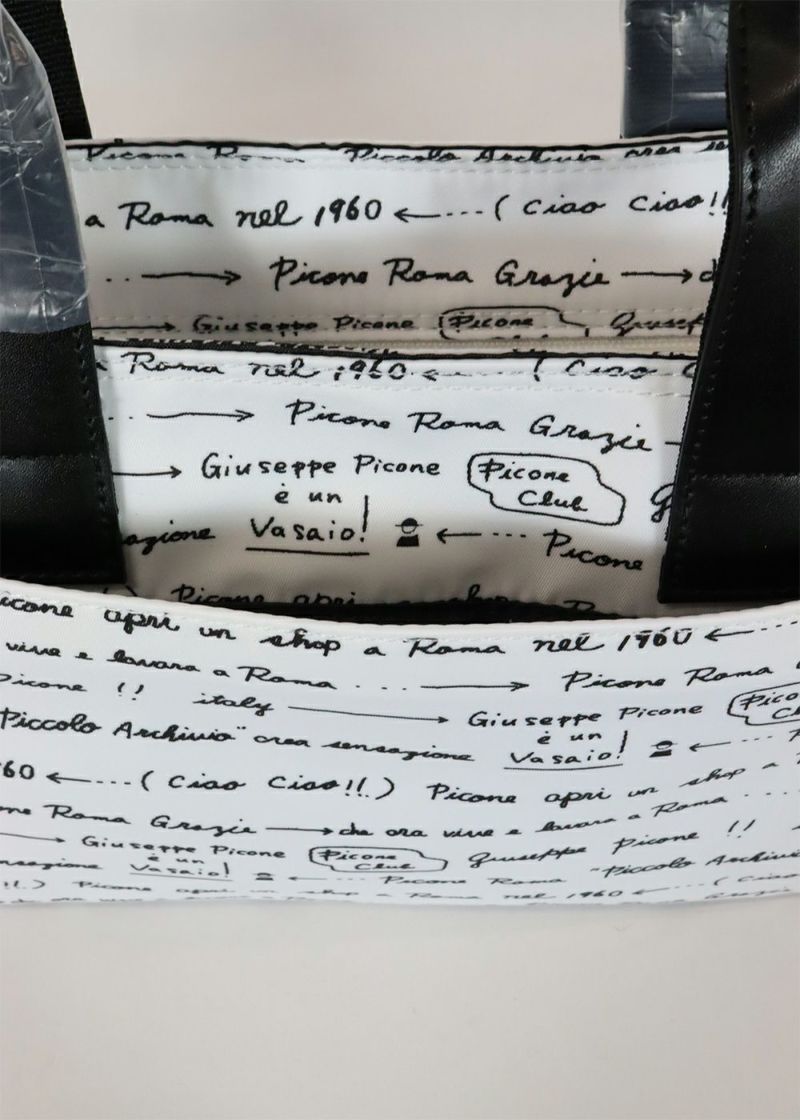 Picone Roma Piccolo Archivio crea se
a Roma nel 1960 ←--- ( Ciao Ciao!!
.. → Picone Roma Grazie → c
→ Giuseppe Picone Picone Giusep
a Roma nel 1960 ← ( Ciao C
.. → Picone Roma Grazie
→ Giuseppe Picone Picone Club G
è un
azione Vasaio! ←--- Picone
Picone apri un shop a Ro
icone apri un shop a Roma nel 1960 ←---
vive e lavora a Roma ... → Picone Roma
Picone !! italy → Giuseppe Picone Picone Club
è un
Piccolo Archivio" crea sensazione Vasaio! ←--- P
60 ←--- ( Ciao Ciao!!.) Picone apri un shop a
ne Roma Grazie → che ora vive e lavora a Roma ....
→ Giuseppe Picone Picone Club Giuseppe Picone !!
è un
nsazione Vasaio! ←--- Picone Roma "Piccolo Archivio
!!.) Picone apri un shop a Roma nel 1960 ←--- ( Ciao